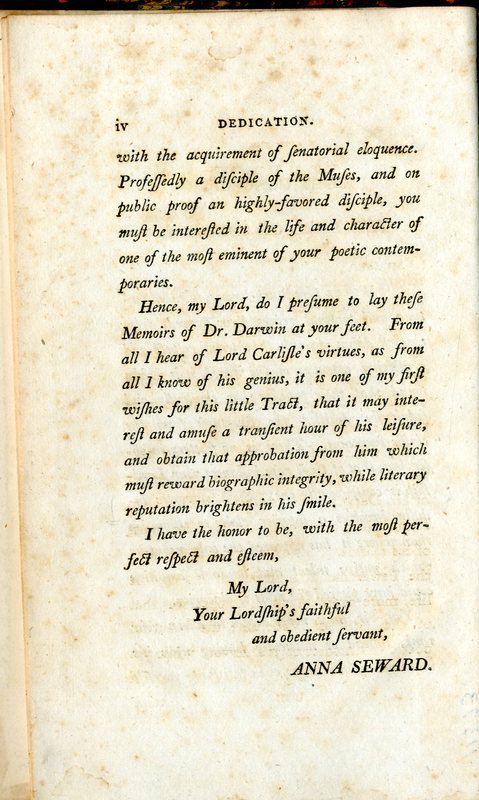 iv DEDICATION.
with the acquirement of ſenatorial eloquence.
Profeſſedly a diſciple of the Muſes, and on
public proof an highly-favored diſciple, you
muſt be intereſted in the life and character of
one of the moſt eminent of your poetic contem-
poraries.
Hence, my Lord, do I preſume to lay theſe
Memoirs of Dr. Darwin at your feet. From
all I hear of Lord Carliſle's virtues, as from
all I know of his genius, it is one of my firſt
wiſhes for this little Tract, that it may inte-
reſt and amuſe a tranſient hour of his leiſure,
and obtain that approbation from him which
muſt reward biographic integrity, while literary
reputation brightens in his ſmile.
I have the honor to be, with the moſt per-
fect reſpect and eſteem,
My Lord,
Your Lordſhip's faithful
and obedient ſervant,
ANNA SEWARD.